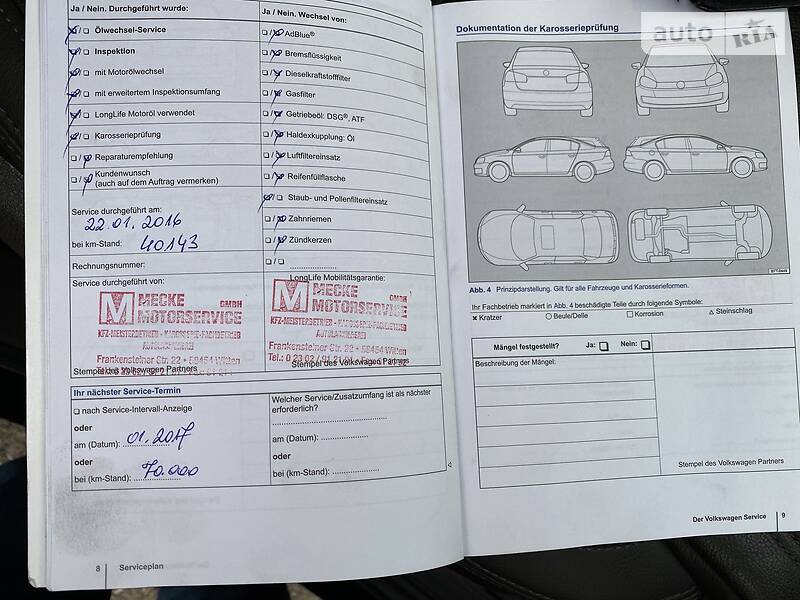 Ja / Nein. Durchgeführt wurde:
/ Ölwechsel-Service
/ Inspektion
/ mit Motorölwechsel
/ mit erweitertem Inspektionsumfang
/ LongLife Motoröl verwendet
/ Karosserieprüfung
/ Reparaturempfehlung
/ Kundenwunsch
(auch auf dem Auftrag vermerken)
Service durchgeführt am:
22.01.2016
bei km-Stand: 40143
Rechnungsnummer:
Service durchgeführt von:
MECKE GMBH
MOTORSERVICE
KFZ-MEISTERBETRIEB - KAROSSERIE-FACHBETRIEB
AUTOLACKIEREREI
Frankensteiner Str. 22 • 58454 Witten
Stempel des Volkswagen Partners
Ja / Nein. Wechsel von:
/ AdBlue®
/ Bremsflüssigkeit
/ Dieselkraftstofffilter
/ Gasfilter
/ Getriebeöl: DSG®, ATF
/ Haldexkupplung: Öl
/ Luftfiltereinsatz
/ Reifenfüllflasche
/ Staub- und Pollenfiltereinsatz
/ Zahnriemen
/ Zündkerzen
/ ....................
LongLife Mobilitätsgarantie:
MECKE GMBH
MOTORSERVICE
KFZ-MEISTERBETRIEB - KAROSSERIE-FACHBETRIEB
AUTOLACKIEREREI
Frankensteiner Str. 22 • 58454 Witten
Tel.: 0 23 02 / 91 21 01
Stempel des Volkswagen Partners
Ihr nächster Service-Termin
nach Service-Intervall-Anzeige
oder
am (Datum): 01.2017
oder
bei (km-Stand): 70.000
Welcher Service/Zusatzumfang ist als nächster
erforderlich?
am (Datum):
bei (km-Stand):
8 Serviceplan
Dokumentation der Karosserieprüfung
auto RIA
Abb. 4 Prinzipdarstellung. Gilt für alle Fahrzeuge und Karosserieformen.
Ihr Fachbetrieb markiert in Abb. 4 beschädigte Teile durch folgende Symbole:
× Kratzer ○ Beule/Delle □ Korrosion △ Steinschlag
Mängel festgestellt? Ja: □ Nein: □
Beschreibung der Mängel:
Stempel des Volkswagen Partners
Der Volkswagen Service 9